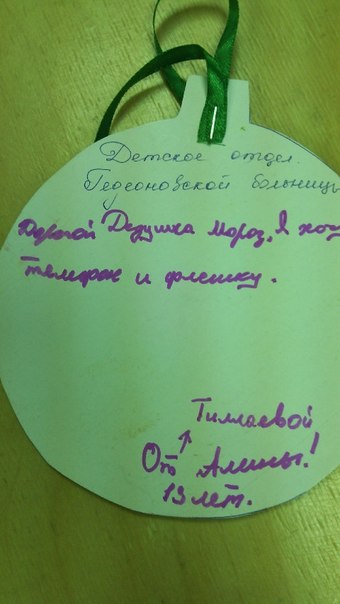 Детское отдел.
Гедеоновской больницы
Дорогой Дедушка Мороз, Я хочу
телефон и флешку.
Тиллаевой
От Алины!
13 лет.